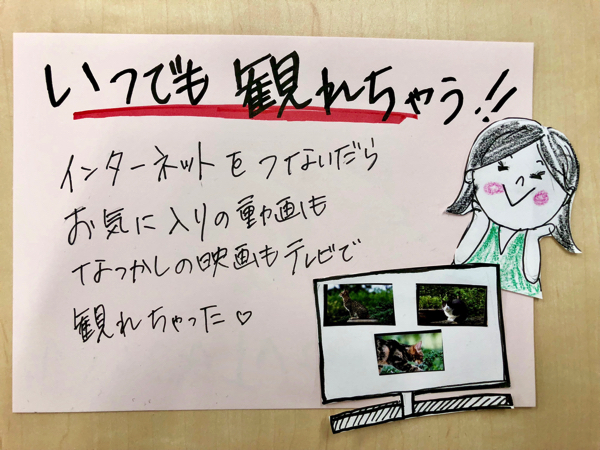 いつでも観れちゃう!!
インターネットをつないだら
お気に入りの動画も
なつかしの映画もテレビで
観れちゃった♡